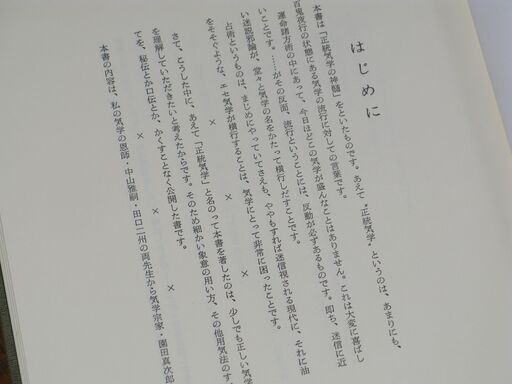 はじめに
本書は「正統気学の神髄」をといたものです。あえて〝正統気学〟というのは、あまりにも、
百鬼夜行の状態にある気学の流行に対しての言葉です。
運命諸方術の中にあって、今日ほどこの気学が盛んなことはありません。これは大変に喜ばし
いことです。……がその反面、流行ということには、反動が必ずあるものです。即ち、迷信に近
い迷説邪論が、堂々と気学の名をかたって横行しだすことです。
占術というものは、まじめにやっていてさえも、ややもすれば迷信視される現代に、それに油
をそそぐような、エセ気学が横行することは、気学にとって非常に困ったことです。
× × ×
さて、こうした中に、あえて「正統気学」と名のって本書を著したのは、少しでも正しい気学
を理解していただきたいと考えたからです。そのため細かい象意の用い方、その他用気法のす
てを、秘伝とか口伝とか、かくすことなく公開した書です。
× × ×
本書の内容は、私の気学の恩師・中山雅嗣・田口二州の両先生から気学宗家・園田真次郎